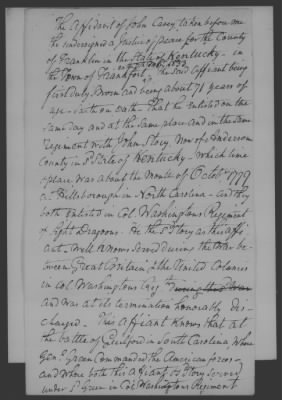 The Affidavit of John Casey taken before me
the undersigned a Justice of peace for the County
of Franklin in the State of Kentucky - in
the Town of Frankfort, The said affiant being
first duly sworn and being about 71 years of
age - saith on oath - that he enlisted on the
same day and at the same place and in the same
regiment with John Story, Now of Anderson
County in sd State of Kentucky - which time
& place was about the month of Octobr 1779
at Hillsborough in North Carolina - and they
both enlisted in Col. Washingtons Regiment
of light Dragoons. He the sd Story as this affi
ant well knows served during the war be-
tween Great Britain & the United Colonies
in Col Washingtons regt during the war
and was at its termination honorably dis-
charged. This affiant knows that at
the battle of Guilford in South Carolina where
Genl Green Commanded the American forces -
and where both this affiant & Story served
under sd Green in Col Washingtons Regiment